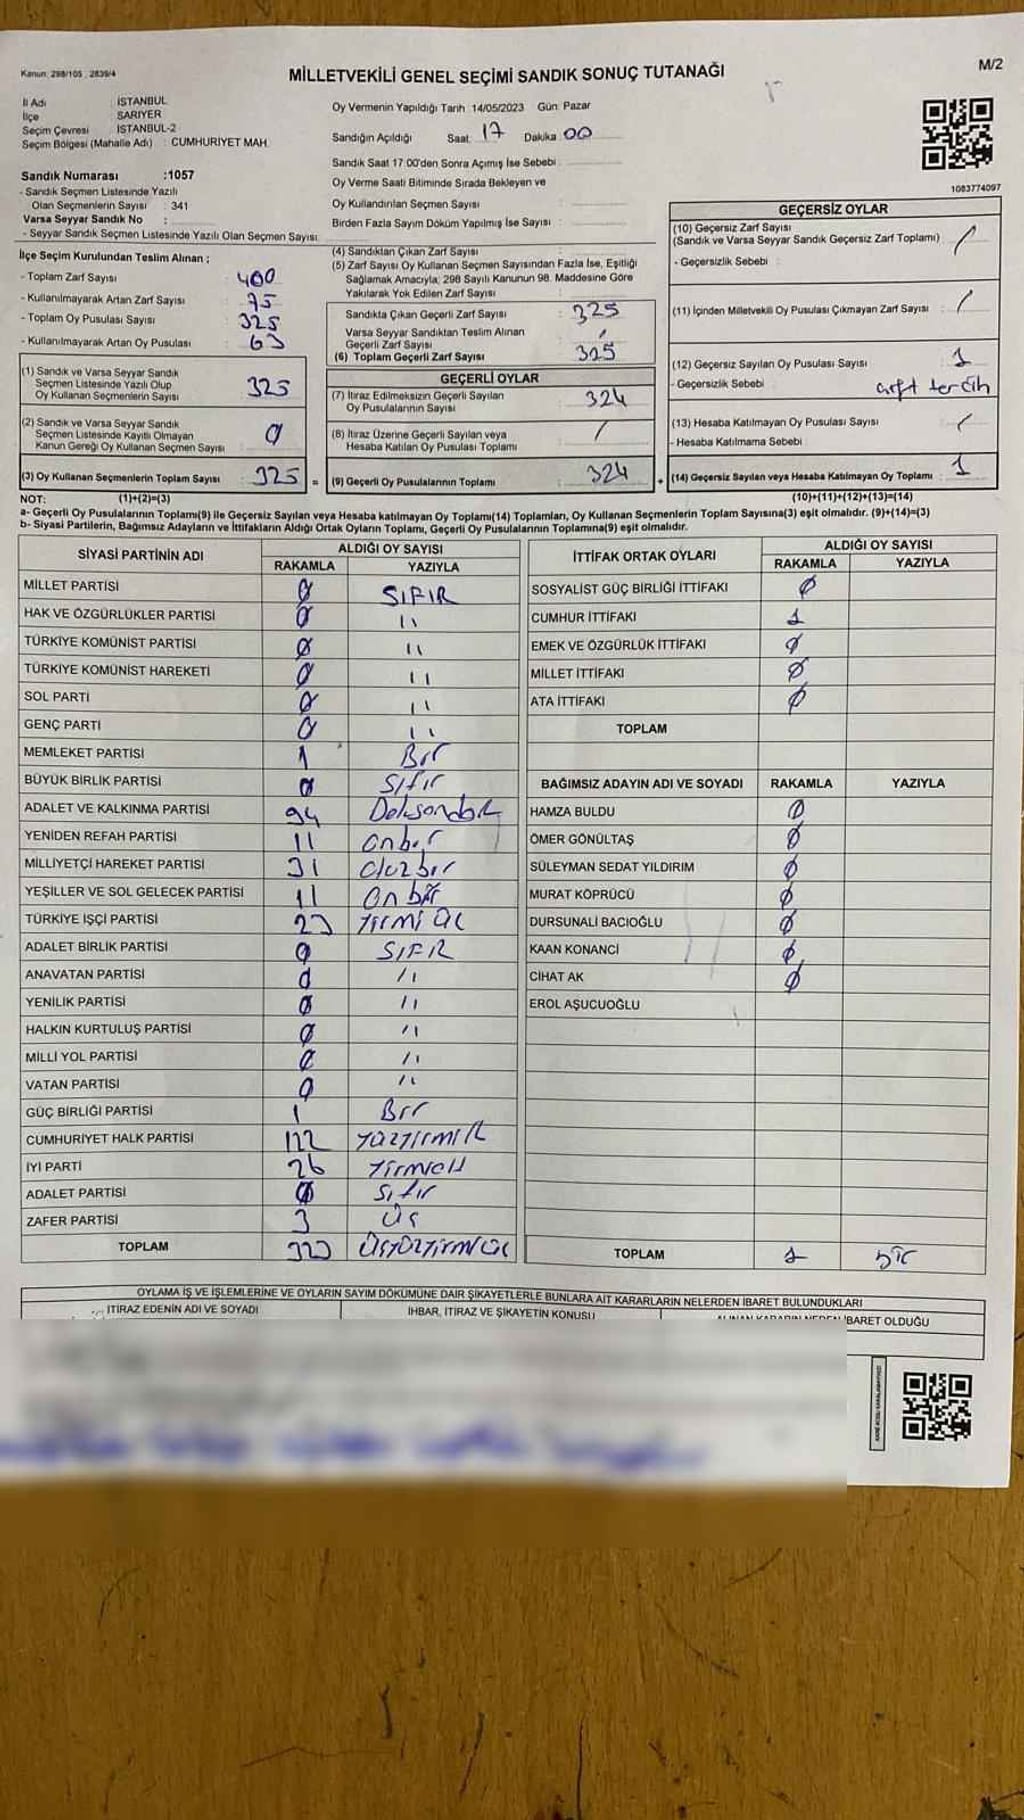 Kanun: 298/105 ; 2839/4
MİLLETVEKİLİ GENEL SEÇİMİ SANDIK SONUÇ TUTANAĞI
M/2
İl Adı : İSTANBUL
İlçe SARIYER
Seçim Çevresi : İSTANBUL-2
Seçim Bölgesi (Mahalle Adı) : CUMHURİYET MAH.
Oy Vermenin Yapıldığı Tarih 14/05/2023 Gün: Pazar
Sandığın Açıldığı Saat: 17 Dakika 00
Sandık Saat 17:00'den Sonra Açımış İse Sebebi :
Oy Verme Saati Bitiminde Sırada Bekleyen ve
Oy Kullandırılan Seçmen Sayısı :
Birden Fazla Sayım Döküm Yapılmış İse Sayısı :
1083774097
Sandık Numarası :1057
- Sandık Seçmen Listesinde Yazılı
Olan Seçmenlerin Sayısı : 341
Varsa Seyyar Sandık No :
- Seyyar Sandık Seçmen Listesinde Yazılı Olan Seçmen Sayısı:
İlçe Seçim Kurulundan Teslim Alınan ;
- Toplam Zarf Sayısı : 400
- Kullanılmayarak Artan Zarf Sayısı : 75
- Toplam Oy Pusulası Sayısı : 325
- Kullanılmayarak Artan Oy Pusulası : 63
(1) Sandık ve Varsa Seyyar Sandık
Seçmen Listesinde Yazılı Olup
Oy Kullanan Seçmenlerin Sayısı : 325
(2) Sandık ve Varsa Seyyar Sandık
Seçmen Listesinde Kayıtlı Olmayan
Kanun Gereği Oy Kullanan Seçmen Sayısı : 0
(3) Oy Kullanan Seçmenlerin Toplam Sayısı : 325 =
(4) Sandıktan Çıkan Zarf Sayısı :
(5) Zarf Sayısı Oy Kullanan Seçmen Sayısından Fazla İse, Eşitliği
Sağlamak Amacıyla; 298 Sayılı Kanunun 98. Maddesine Göre
Yakılarak Yok Edilen Zarf Sayısı :
Sandıkta Çıkan Geçerli Zarf Sayısı : 325
Varsa Seyyar Sandıktan Teslim Alınan
Geçerli Zarf Sayısı : /
(6) Toplam Geçerli Zarf Sayısı : 325
GEÇERLİ OYLAR
(7) İtiraz Edilmeksizin Geçerli Sayılan
Oy Pusulalarının Sayısı : 324
(8) İtiraz Üzerine Geçerli Sayılan veya
Hesaba Katılan Oy Pusulası Toplamı : /
(9) Geçerli Oy Pusulalarının Toplamı : 324 +
GEÇERSİZ OYLAR
(10) Geçersiz Zarf Sayısı
(Sandık ve Varsa Seyyar Sandık Geçersiz Zarf Toplamı) : /
- Geçersizlik Sebebi :
(11) İçinden Milletvekili Oy Pusulası Çıkmayan Zarf Sayısı : /
(12) Geçersiz Sayılan Oy Pusulası Sayısı : 1
- Geçersizlik Sebebi : çift tercih
(13) Hesaba Katılmayan Oy Pusulası Sayısı : /
- Hesaba Katılmama Sebebi :
(14) Geçersiz Sayılan veya Hesaba Katılmayan Oy Toplamı : 1
NOT: (1)+(2)=(3) (10)+(11)+(12)+(13)=(14)
a- Geçerli Oy Pusulalarının Toplamı(9) ile Geçersiz Sayılan veya Hesaba katılmayan Oy Toplamı(14) Toplamları, Oy Kullanan Seçmenlerin Toplam Sayısına(3) eşit olmalıdır. (9)+(14)=(3)
b- Siyasi Partilerin, Bağımsız Adayların ve İttifakların Aldığı Ortak Oyların Toplamı, Geçerli Oy Pusulalarının Toplamına(9) eşit olmalıdır.
SİYASİ PARTİNİN ADI ALDIĞI OY SAYISI
RAKAMLA YAZIYLA
MİLLET PARTİSİ 0 SIFIR
HAK VE ÖZGÜRLÜKLER PARTİSİ 0 "
TÜRKİYE KOMÜNİST PARTİSİ 0 "
TÜRKİYE KOMÜNİST HAREKETİ 0 "
SOL PARTİ 0 "
GENÇ PARTİ 0 "
MEMLEKET PARTİSİ 1 Bir
BÜYÜK BİRLİK PARTİSİ 0 Sıfır
ADALET VE KALKINMA PARTİSİ 94
YENİDEN REFAH PARTİSİ 11 onbir
MİLLİYETÇİ HAREKET PARTİSİ 31 otuzbir
YEŞİLLER VE SOL GELECEK PARTİSİ 11 On bir
TÜRKİYE İŞÇİ PARTİSİ 23 Yirmi üç
ADALET BİRLİK PARTİSİ 0 SIFIR
ANAVATAN PARTİSİ 0 "
YENİLİK PARTİSİ 0 "
HALKIN KURTULUŞ PARTİSİ 0 "
MİLLİ YOL PARTİSİ 0 "
VATAN PARTİSİ 0 "
GÜÇ BİRLİĞİ PARTİSİ 1 Bir
CUMHURİYET HALK PARTİSİ 122
İYİ PARTİ 26 Yirmialtı
ADALET PARTİSİ 0 Sıfır
ZAFER PARTİSİ 3 Üç
TOPLAM 323 Üçyüzyirmiüç
İTTİFAK ORTAK OYLARI ALDIĞI OY SAYISI
RAKAMLA YAZIYLA
SOSYALİST GÜÇ BİRLİĞİ İTTİFAKI 0
CUMHUR İTTİFAKI 1
EMEK VE ÖZGÜRLÜK İTTİFAKI 0
MİLLET İTTİFAKI 0
ATA İTTİFAKI 0
TOPLAM
BAĞIMSIZ ADAYIN ADI VE SOYADI RAKAMLA YAZIYLA
HAMZA BULDU 0
ÖMER GÖNÜLTAŞ 0
SÜLEYMAN SEDAT YILDIRIM 0
MURAT KÖPRÜCÜ 0
DURSUNALİ BACIOĞLU 0
KAAN KONANCİ 0
CİHAT AK 0
EROL AŞUCUOĞLU
TOPLAM 1 bir
OYLAMA İŞ VE İŞLEMLERİNE VE OYLARIN SAYIM DÖKÜMÜNE DAİR ŞİKAYETLERLE BUNLARA AİT KARARLARIN NELERDEN İBARET BULUNDUKLARI
İTİRAZ EDENİN ADI VE SOYADI İHBAR, İTİRAZ VE ŞİKAYETİN KONUSU ALINAN KARARIN NEDEN İBARET OLDUĞU